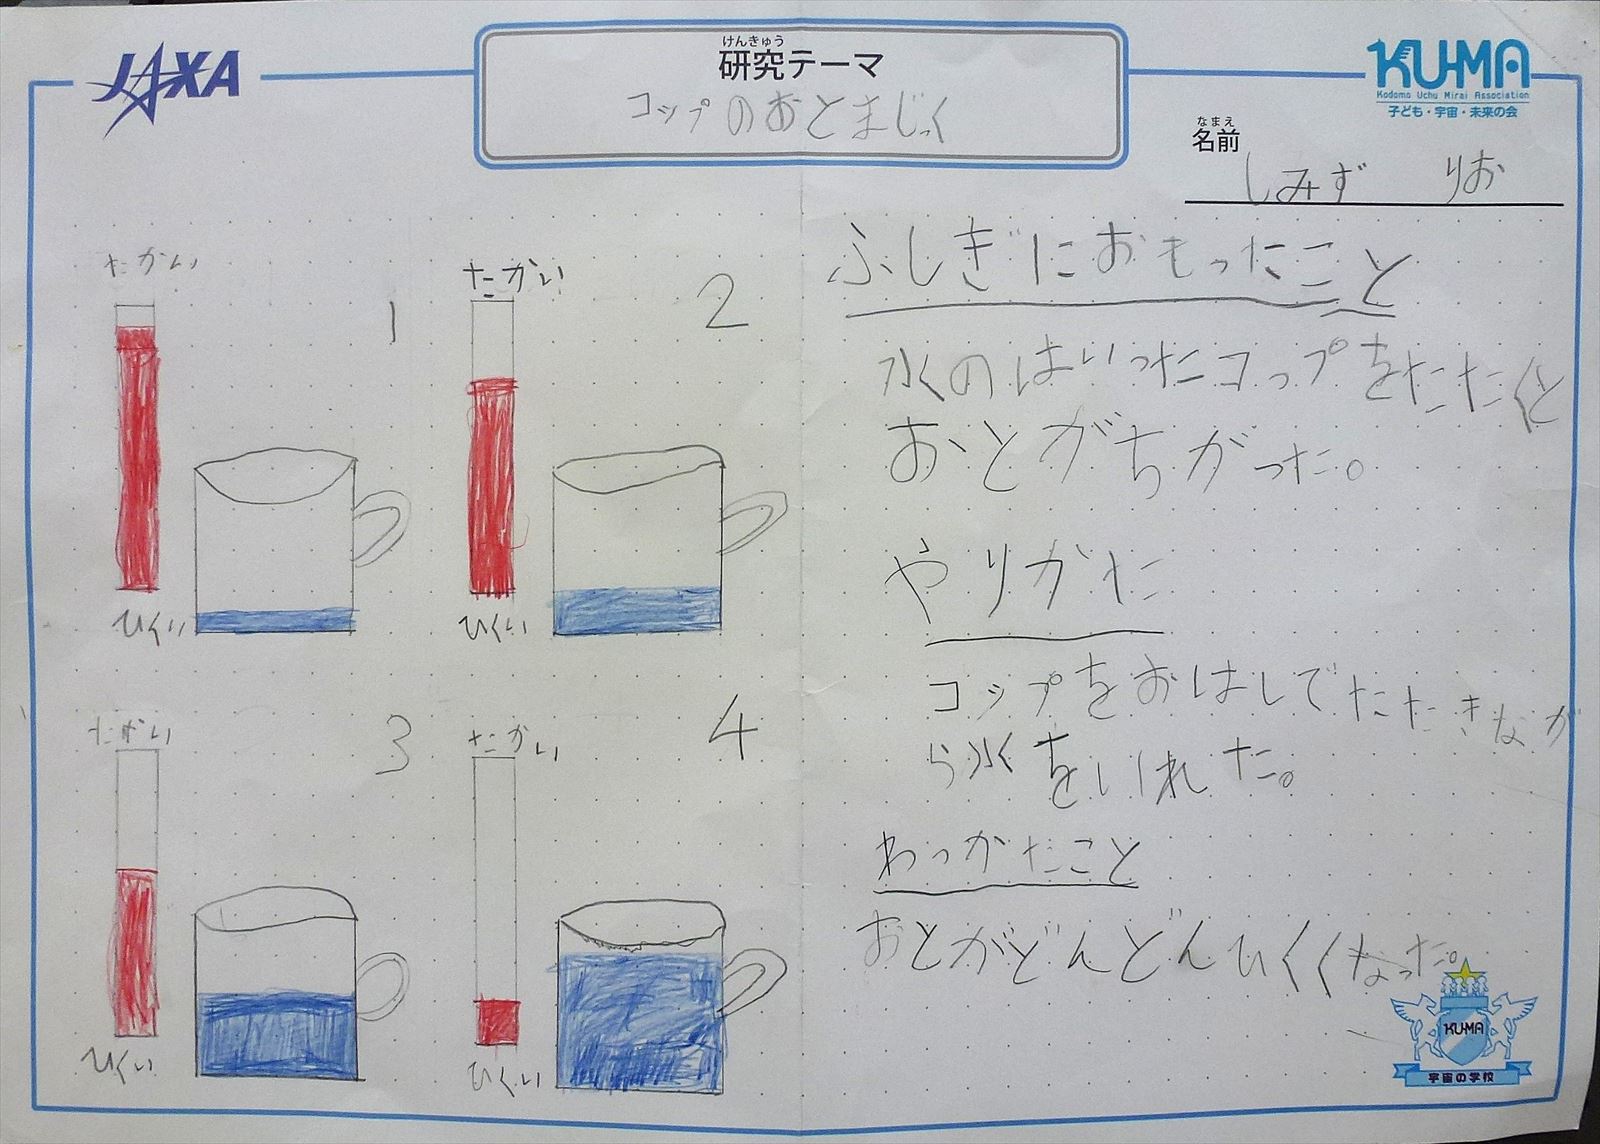 JAXA
けんきゅう
研究テーマ
コップのおとまじっく
KU-MA
Kodomo Uchu Mirai Association
子ども・宇宙・未来の会
なまえ
名前
しみず りお
たかい
1
ひくい
たかい
2
ひくい
たかい
3
ひくい
たかい
4
ひくい
ふしぎにおもったこと
水のはいったコップをたたくと
おとがちがった。
やりかた
コップをおはしでたたきなが
ら水をいれた。
わっかたこと
おとがどんどんひくくなった。
KU-MA
宇宙の学校